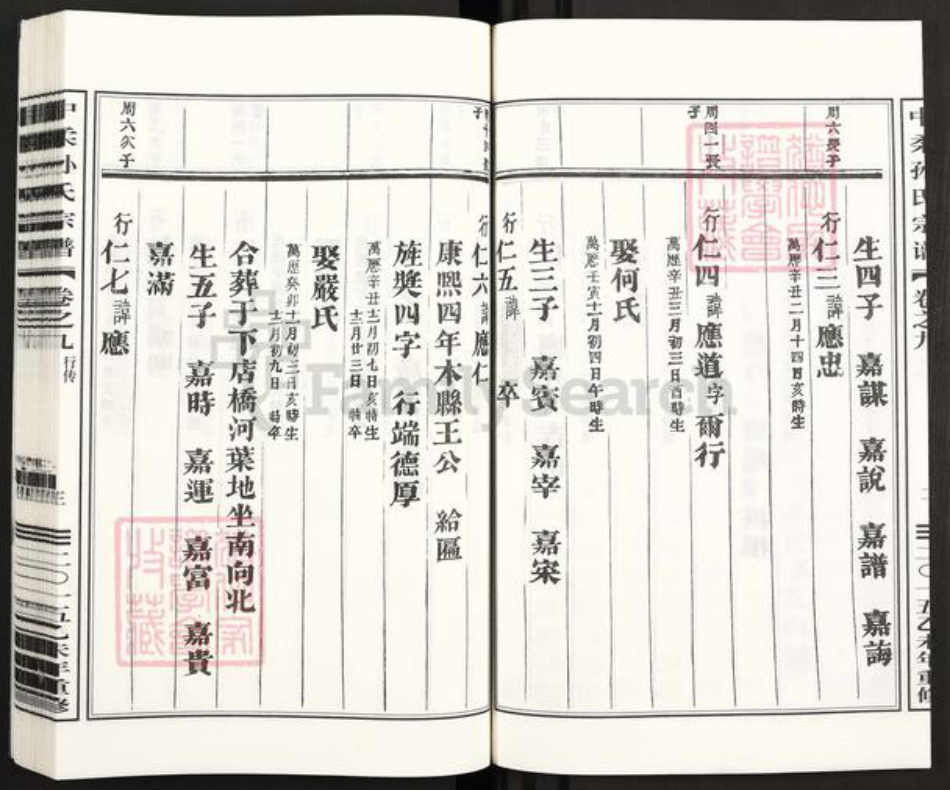 生四子 嘉謀 嘉說 嘉譜 嘉誨
周六長子
行仁三諱應忠
萬歷辛丑二月十四日亥時生
周四一長子
行仁四諱應道字爾行
萬歷辛丑三月初三日酉時生
娶何氏
萬歷壬寅十一月初四日午時生
生三子 嘉賓 嘉宰 嘉宋
行仁五諱 卒
行仁六諱應仁
康熙四年本縣王公 給匾
旌獎四字 行端德厚
萬歷辛丑十二月初七日亥時生
十二月廿三日 時卒
娶嚴氏
萬歷癸卯十一月初三日亥時生
十二月初九日 時卒
合葬于下店橋河葉地坐南向北
生五子 嘉時 嘉運 嘉富 嘉貴
嘉滿
周六次子
行仁七諱應
中柔孙氏宗谱
卷之九
行传
三
二〇一五乙未年重修
FamilySearch